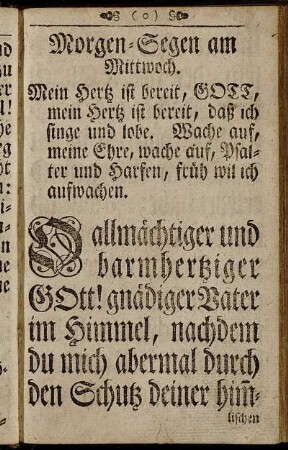 ( o )
Morgen-Segen am
Mittwoch.
Mein Hertz ist bereit, GOTT,
mein Hertz ist bereit, daß ich
singe und lobe. Wache auf,
meine Ehre, wache auf, Psal-
ter und Harfen, früh wil ich
aufwachen.
O allmächtiger und
barmhertziger
GOtt! gnädiger Vater
im Himmel, nachdem
du mich abermal durch
den Schutz deiner him̃-
lischen